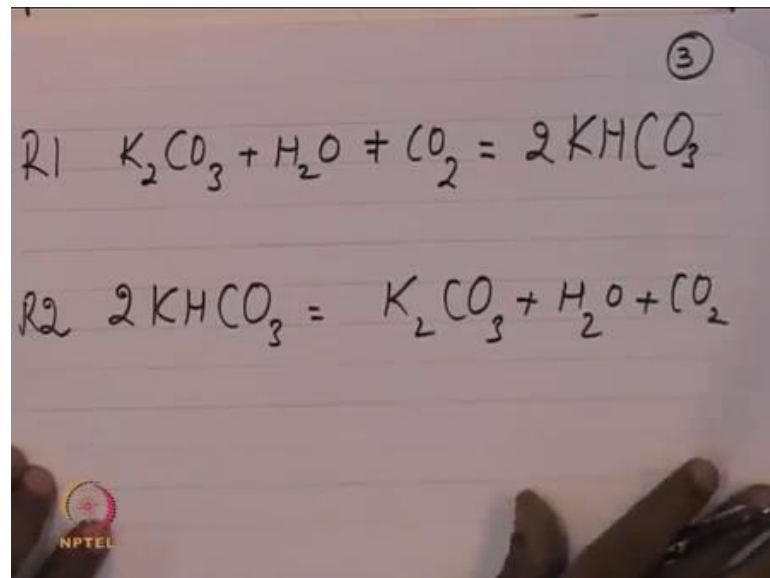 ③
R1 K₂CO₃ + H₂O + CO₂ = 2KHCO₃
R2 2KHCO₃ = K₂CO₃ + H₂O + CO₂
NPTEL